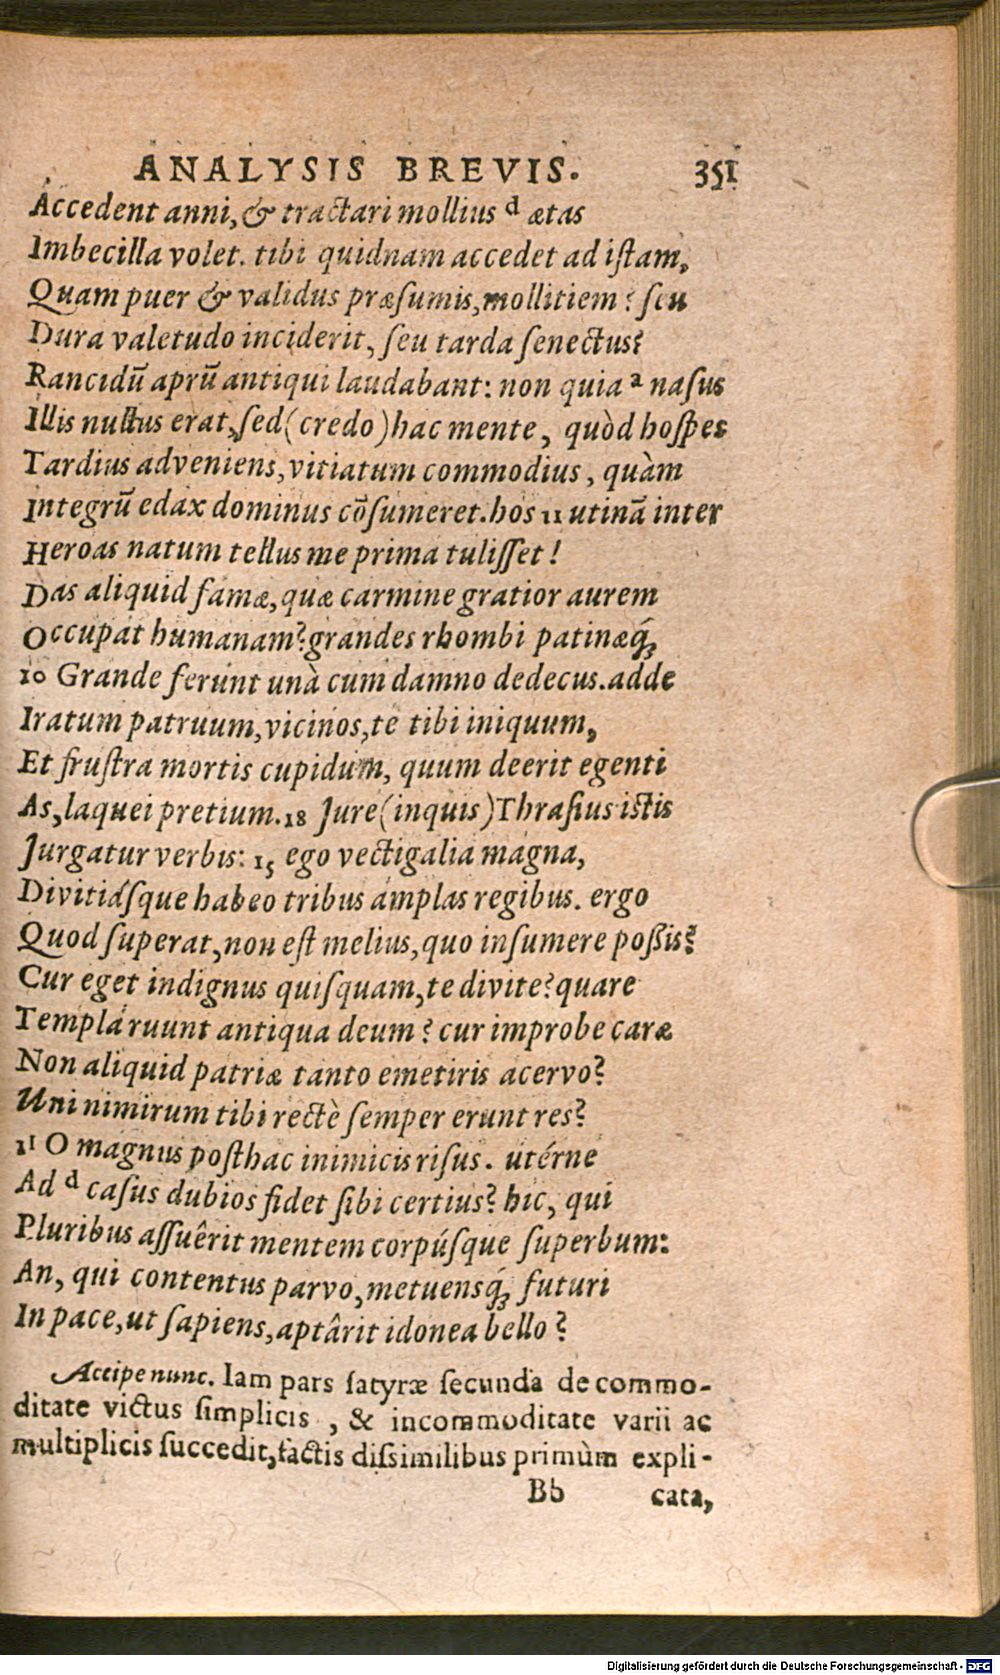 ANALYSIS BREVIS. 351
Accedent anni, & tractari mollius d ætas
Imbecilla volet. tibi quidnam accedet ad iſtam,
Quam puer & validus præſumis, mollitiem? ſeu
Dura valetudo inciderit, ſeu tarda ſenectus?
Rancidū aprū antiqui laudabant: non quia a naſus
Illis nullus erat, ſed (credo) hac mente, quòd hoſpes
Tardius adveniens, vitiatum commodius, quàm
Integrū edax dominus cōſumeret. hos 11 utinā inter
Heroas natum tellus me prima tuliſſet!
Das aliquid famæ, quæ carmine gratior aurem
Occupat humanam? grandes rhombi patinæq́;
10 Grande ferunt unà cum damno dedecus. adde
Iratum patruum, vicinos, te tibi iniquum,
Et fruſtra mortis cupidum, quum deerit egenti
As, laquei pretium. 18 Jure (inquis) Thraſius iſtis
Jurgatur verbis: 15 ego vectigalia magna,
Divitiáſque habeo tribus amplas regibus. ergo
Quod ſuperat, non eſt melius, quo inſumere poßis?
Cur eget indignus quiſquam, te divite? quare
Templa ruunt antiqua deum? cur improbe caræ
Non aliquid patriæ tanto emetiris acervo?
Uni nimirum tibi rectè ſemper erunt res?
11 O magnus poſthac inimicis riſus. utérne
Ad d caſus dubios fidet ſibi certius? hic, qui
Pluribus aſſuêrit mentem corpúſque ſuperbum:
An, qui contentus parvo, metuensq́; futuri
In pace, ut ſapiens, aptârit idonea bello?
Accipe nunc. Iam pars ſatyræ ſecunda de commo-
ditate victus ſimplicis, & incommoditate varii ac
multiplicis ſuccedit, factis diſsimilibus primùm expli-
Bb cata,
Digitalisierung gefördert durch die Deutsche Forschungsgemeinschaft - DFG